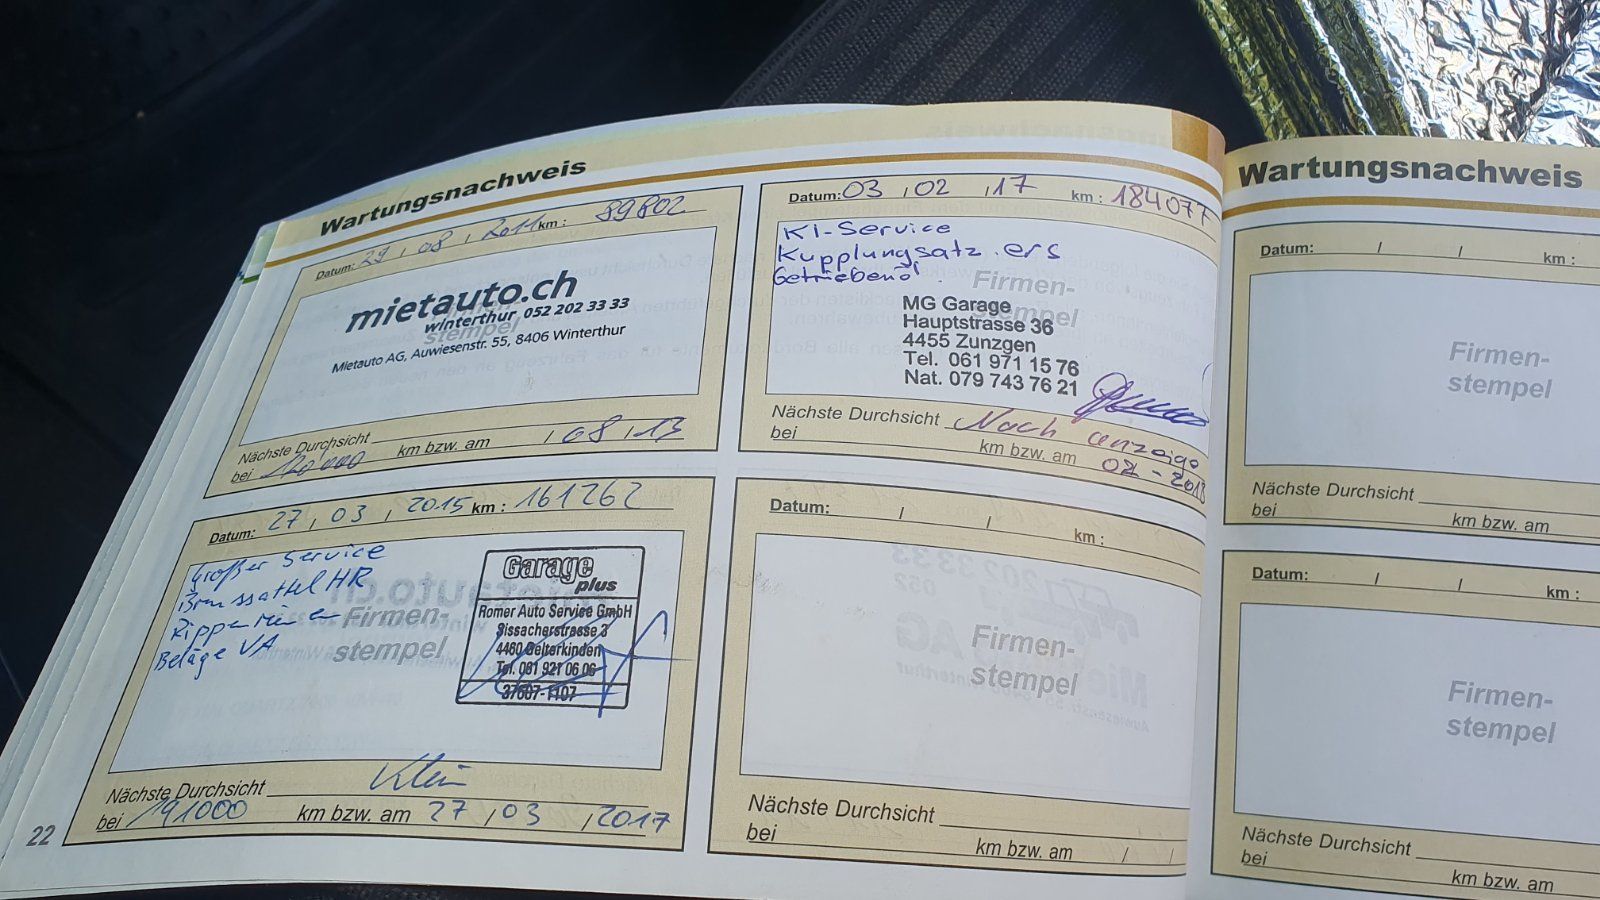 Wartungsnachweis
Datum: 29 / 08 / 2011 km: 89802
mietauto.ch
winterthur 052 202 33 33
stempel
Mietauto AG, Auwiesenstr. 55, 8406 Winterthur
Nächste Durchsicht
bei 120000 km bzw. am / 08 / 13
Datum: 27 / 03 / 2015 km: 161262
Großer Service
Bremssattel HR
Rippenriemen
Beläge VA
Firmen-
stempel
Garage
plus
Romer Auto Service GmbH
Sissacherstrasse 3
4460 Gelterkinden
Tel. 061 921 06 06
37607-1107
Nächste Durchsicht Klein
bei 191000 km bzw. am 27 / 03 / 2017
22
Datum: 03 / 02 / 17 km: 184077
Kl-Service
Kupplungsatz.ers
Getriebenöl
Firmen-
stempel
MG Garage
Hauptstrasse 36
4455 Zunzgen
Tel. 061 971 15 76
Nat. 079 743 76 21
Nächste Durchsicht Nach anzeige
bei km bzw. am 02 - 2018
Datum: / / km:
Firmen-
stempel
Nächste Durchsicht
bei km bzw. am / /
Wartungsnachweis
Datum: / / km:
Firmen-
stempel
Nächste Durchsicht
bei km bzw. am
Datum: / / km:
Firmen-
stempel
Nächste Durchsicht
bei km bzw. am